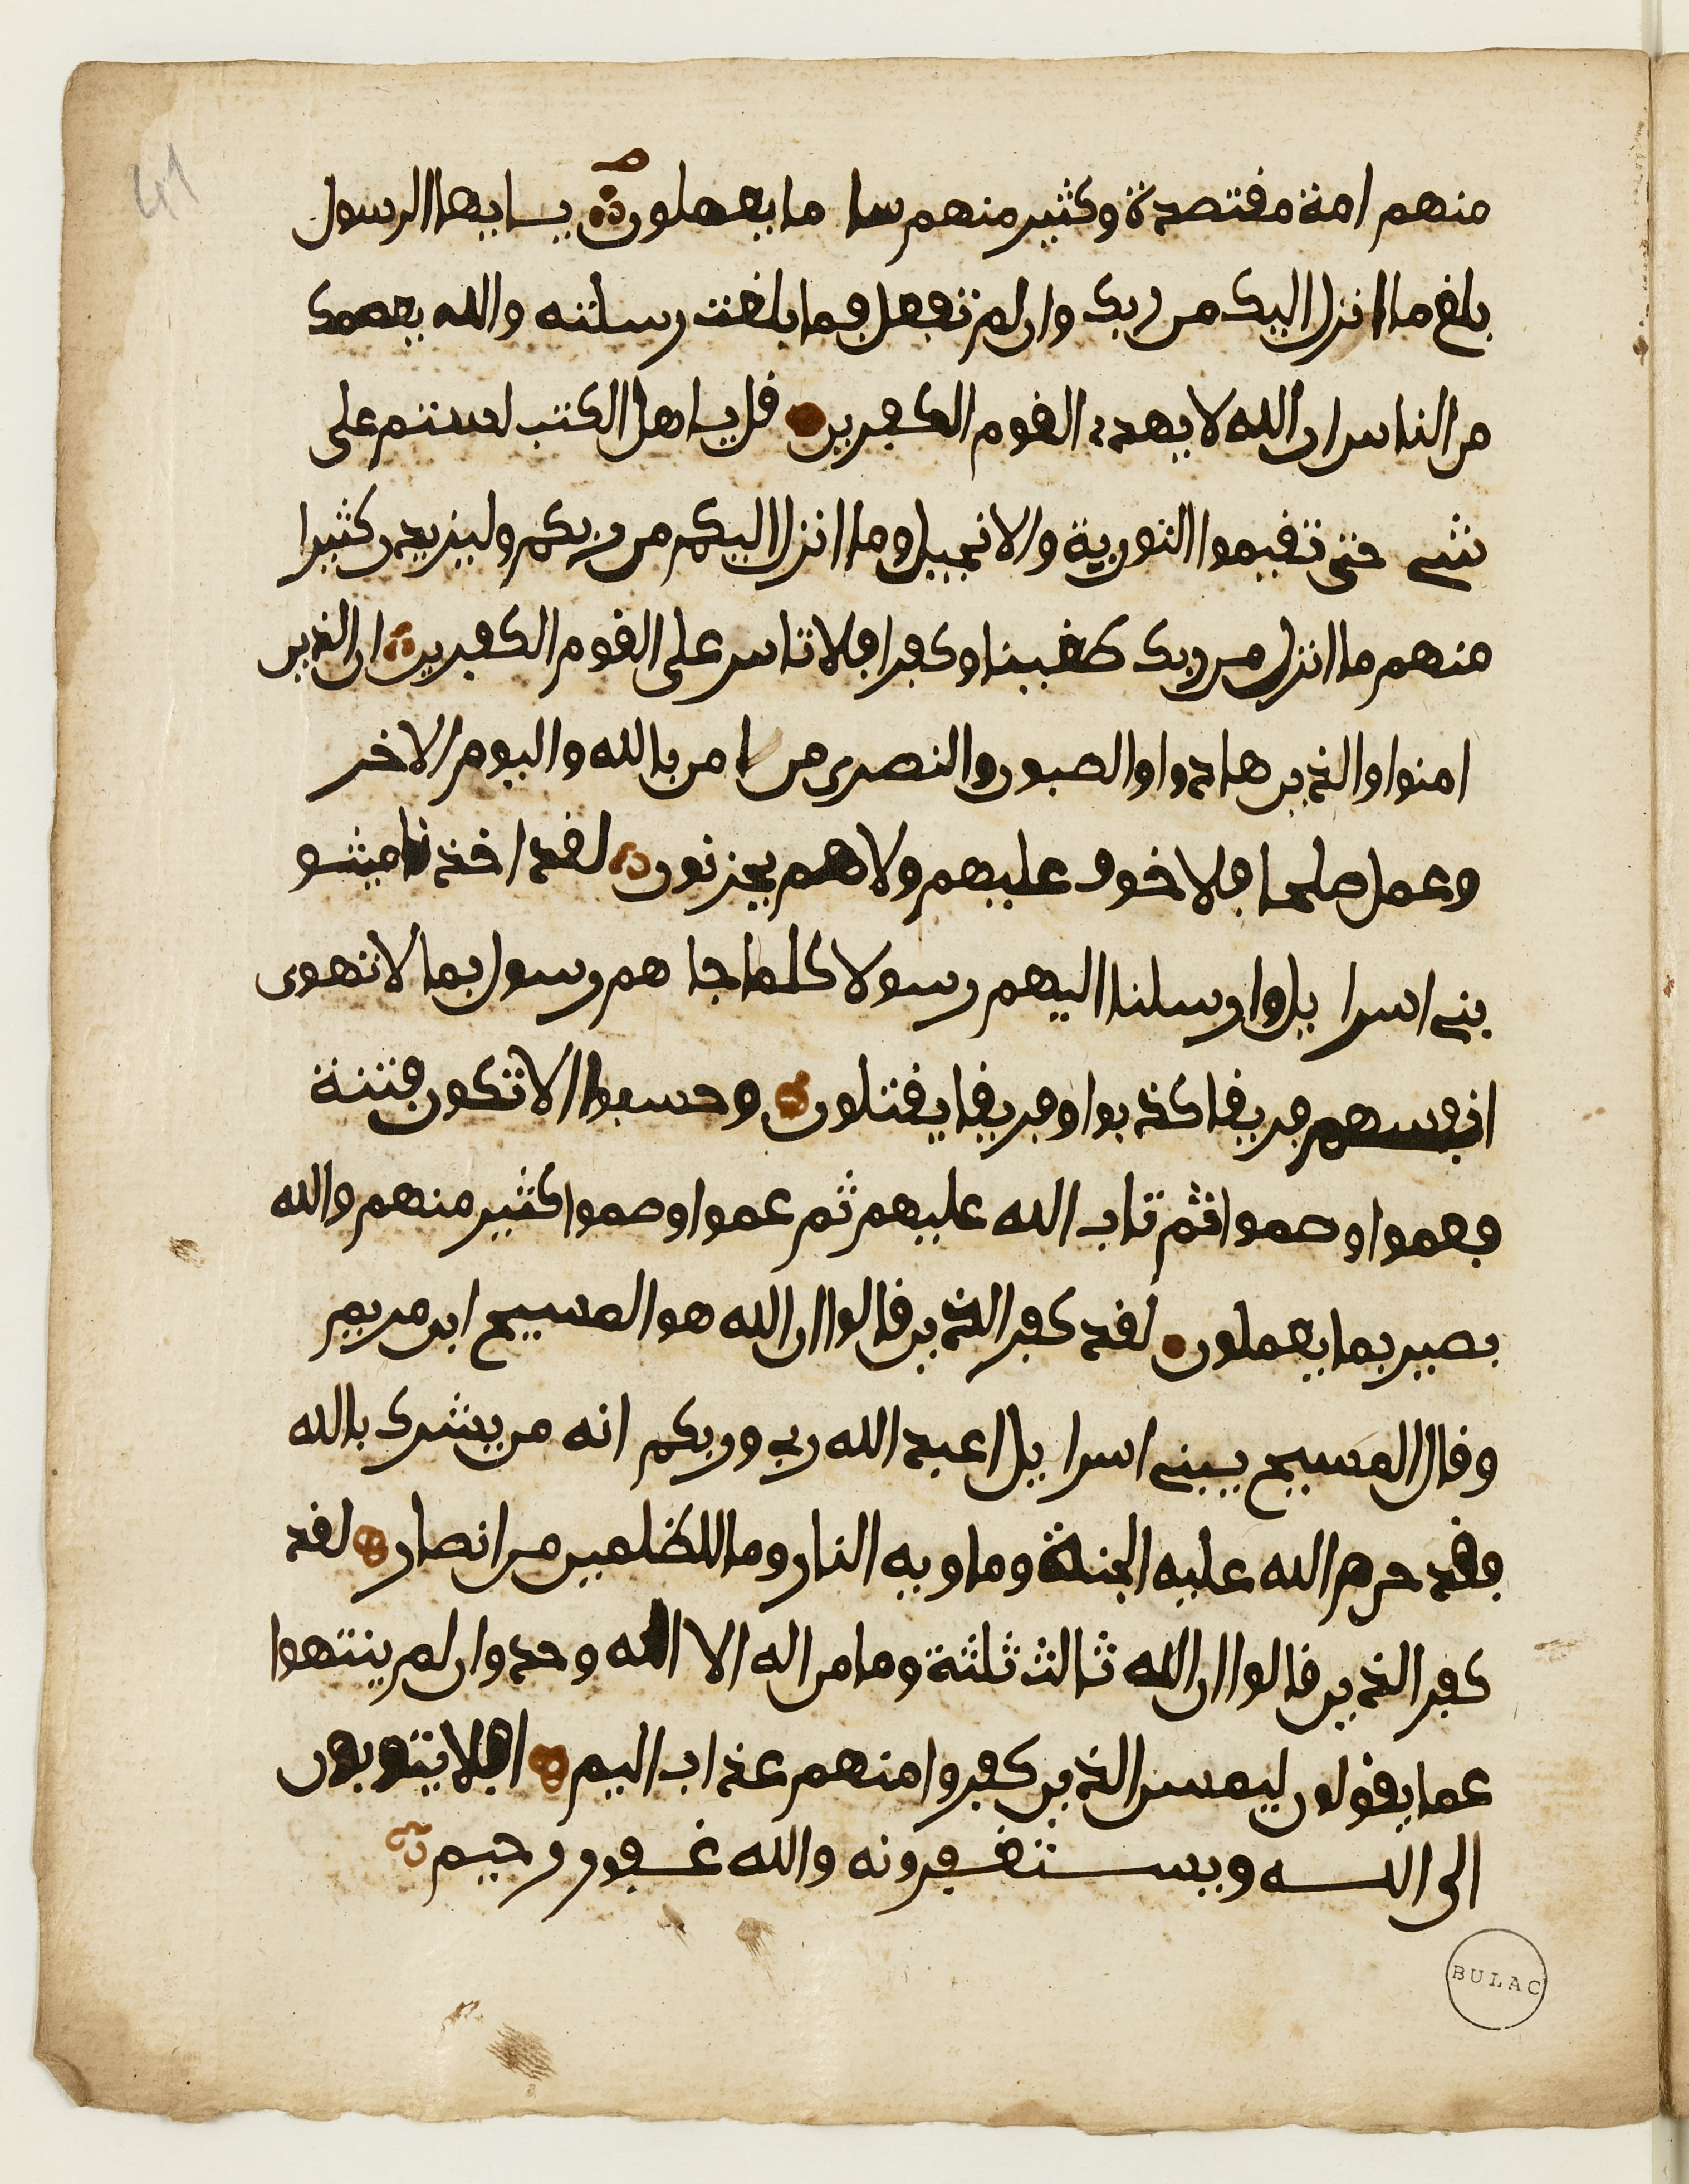 41
منهم امة مفتصدة وكثير منهم سا ما يعملون يايها الرسول
بلغ ما انزل اليك من ربك وان لم تفعل فما بلغت رسلته والله يعصمك
من الناس ان الله لا يهدے الفوم الكفرين فل ياهل الكتب لستم على
شے حتى تفيموا التورية والانجيل وما انزل اليكم من ربكم وليزيدن كثيرا
منهم ما انزل من ربك طغينا وكفرا فلا تاس على الفوم الكفرين ان الذين
امنوا والذين هادوا والصبون والنصرى من امن بالله واليوم الاخر
وعمل صلحا فلا خوف عليهم ولا هم يحزنون لفد اخذنا ميثو
بنے اسرا يل وارسلنا اليهم رسولا كلما جا هم رسول بما لا تهوى
انفسهم فريفا كذبوا وفريفا يفتلون وحسبوا الا تكون فتنة
فعموا وصموا ثم تاب الله عليهم ثم عموا وصموا كثير منهم والله
بصير بما يعملون لفد كفر الذين فالوا ان الله هو المسيح ابن مريم
وفال المسيح يبنے اسرا يل اعبد الله ربے وربكم انه من يشرك بالله
ففد حرم الله عليه الجنة وماويه النار وما للظلمين من انصار لفد
كفر الذين فالوا ان الله ثالث ثلثة وما من اله الا اله وحد وان لم ينتهوا
عما يفولون ليمسن الذين كفروا منهم عذاب اليم افلا يتوبون
الى الله ويستغفرونه والله غفور رحيم
BULAC